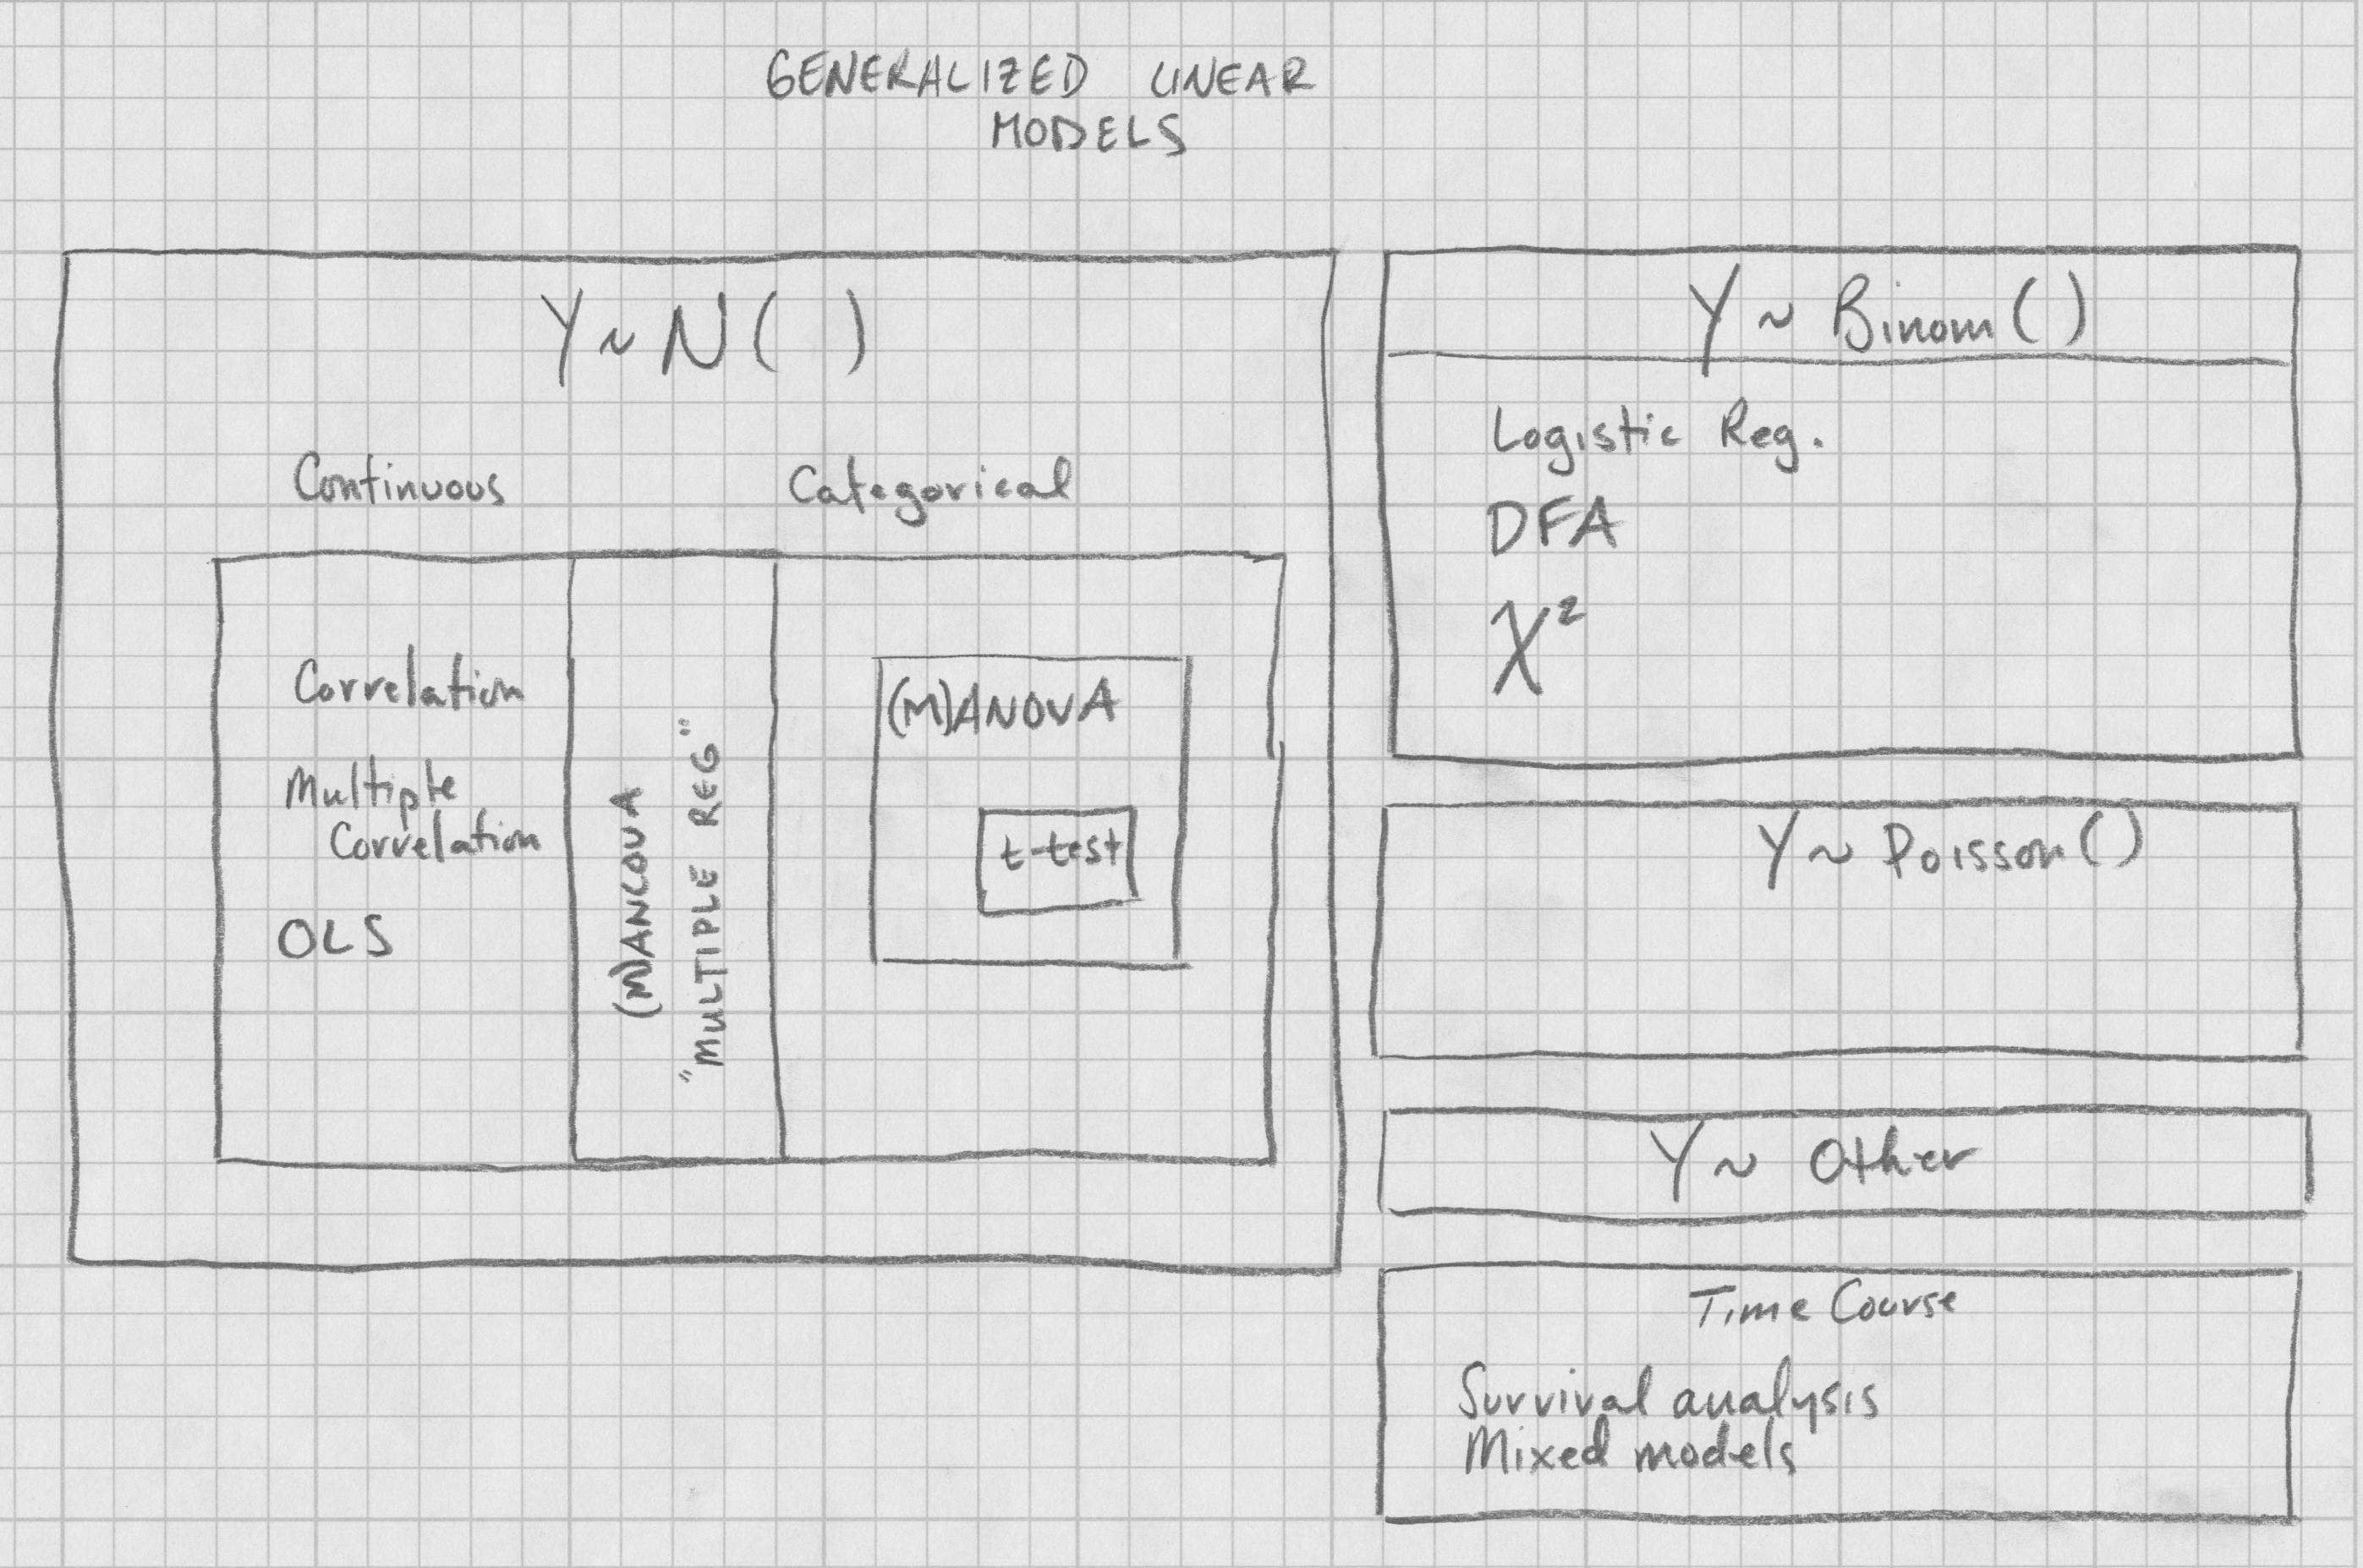 GENERALIZED LINEAR
MODELS
Y ~ N( )
Continuous
Categorical
Correlation
Multiple
Correlation
OLS
(M)ANCOVA
"MULTIPLE REG"
(M)ANOVA
t-test
Y ~ Binom()
Logistic Reg.
DFA
χ²
Y ~ Poisson()
Y ~ Other
Time Course
Survival analysis
Mixed models